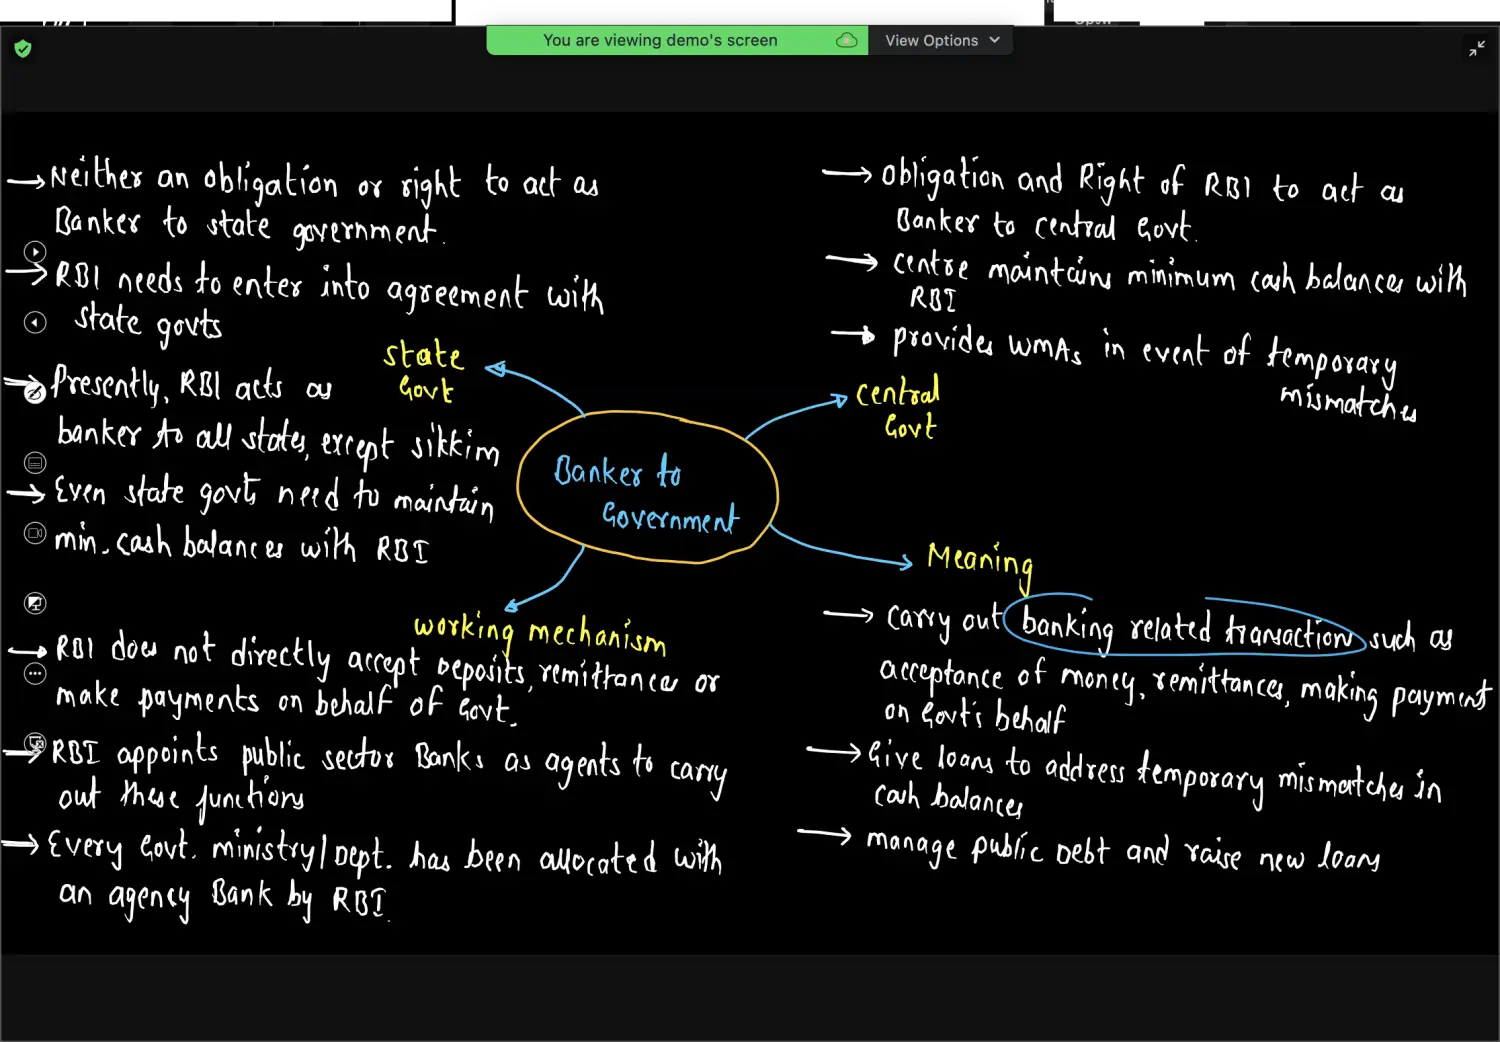 You are viewing demo's screen
View Options
→ Neither an obligation or right to act as
Banker to state government.
→ RBI needs to enter into agreement with
state govts
→ Presently, RBI acts as
banker to all states, except sikkim
→ Even state govts need to maintain
min. cash balances with RBI
state
Govt
→ obligation and Right of RBI to act as
Banker to central Govt.
→ centre maintains minimum cash balances with
RBI
→ provides WMAs in event of temporary
mismatches
central
Govt
Banker to
Government
Meaning
→ carry out banking related transaction such as
acceptance of money, remittances, making payment
on Govt's behalf
→ Give loans to address temporary mismatches in
cash balances
→ manage public Debt and raise new loans
working mechanism
→ RBI does not directly accept Deposits, remittances or
make payments on behalf of Govt.
→ RBI appoints public sector Banks as agents to carry
out these functions
→ Every Govt. ministry/Dept. has been allocated with
an agency Bank by RBI.